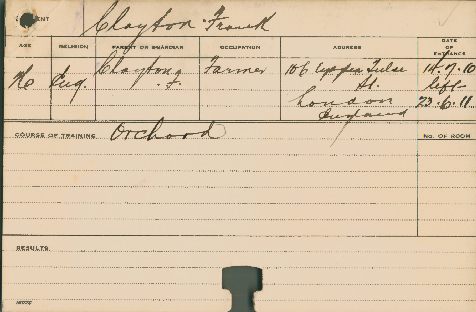 Clayton Frank
AGE RELIGION PARENT OR GUARDIAN OCCUPATION ADDRESS DATE OF ENTRANCE
Eng. Clayton, F. Farmer 106 Upper Tulse 14.7.10
St. left
London 23.6.11
England
COURSE OF TRAINING Orchard NO. OF ROOM
RESULTS